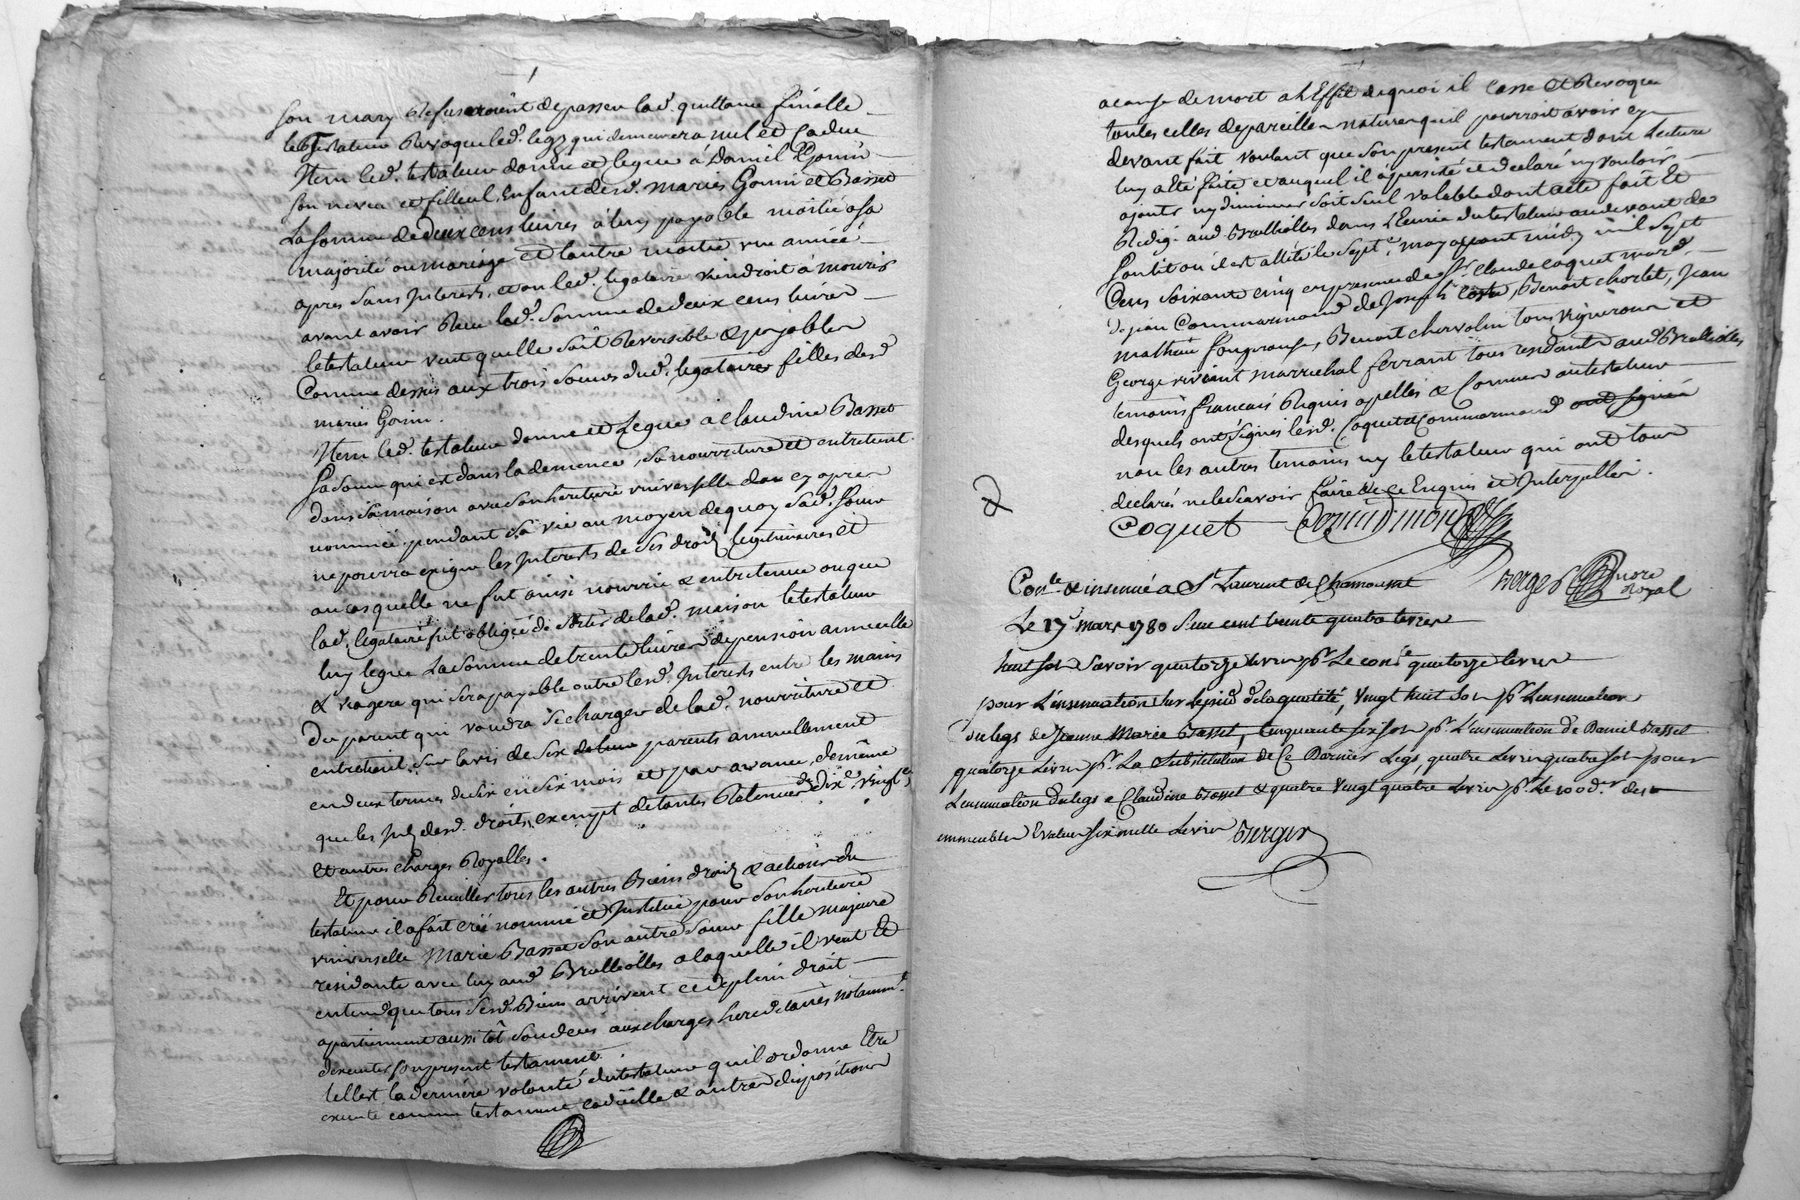 son mary Refuseroint de passer lad. quittance finalle
le testateur Revoque led. legz qui demeurera nul et Caduc
Item led. testateur donne et legue à Daniel Gonin
son neveu et filleul Enfant desd. mariés Gonin et Basset
La somme de deux cens livres à luy payable moitié a sa
majorité ou mariage et l'autre moitié une année
apres sans Interests, et ou led. legataire viendroit à mourir
avant avoir Reçu lad. somme de deux cens livres
le testateur veut quelle soit Reversible & payable
Comme dessus aux trois soeurs dud. legataire filles desd.
mariés Gonin.
Item led. testateur donne et Legue à Claudine Basset
sa soeur qui est dans la demence, sa nourriture et entretient
dans sa maison avec son heritiere universelle cy apres
nommée pendant sa vie au moyen de quoy sad. soeur
ne pourra exiger les Interests de ses droits legitimaires et
au cas quelle ne fut ainsi nourrie & entretenue ou que
lad. legataire fut obligée de sortir de lad. maison le testateur
luy legue La somme de trente livres de pension annuelle
& viagere qui sera payable outre lesd. Interests entre les mains
Du parent qui voudra se charger de lad. nourriture et
entretient, sur lavis de six parents annuellement
en deux termes de six en six mois et par avance, de même
que les Int. desd. droits, exempt de toutes Retenues de Dix.e vingt.e
et autres charges Royalles.
Et pour Recuillir tous les autres Biens droits & actions du
testateur il a fait créé nommé et Institué pour son heritiere
universelle Marie Basset son autre soeur fille majeure
residante avec luy aud. Brullioles a laquelle il veut Et
entend que tous sesd. Biens arrivent et de plein droit
apartiennent aussitôt son deces aux charges hereditaires notamm.t
dexecuter son present testament.
telle est la derniere volonté du testateur qu'il ordonne Etre
executé comme testament codicille & autres dispositions
a cause de mort a l'Effet de quoi il Casse et Revoque
toutes celles de pareille nature qu'il pourroit avoir cy
devant fait voulant que son present testament dont Lecture
luy a été faite et auquel il a persisté et declaré ny vouloir
ajouter ny diminuer soit seul valable dont acte fait Et
Redigé aud. Brullioles dans L'Ecurie du testateur au devant de
son lit ou il est allité le Sept.e may apant midy mil sept
Cens soixante cinq en presence de Sr. Claude Coquet mard.
Sr. jean Commarmond de Joseph Coste, Benoit Chorlet, Jean
mathieu fougerouse, Benoit chervolin tous vignerons et
George vivient marrechal ferrant tous residants aud. Brullioles
temoins francais Requis apellés & Connus au testateur
desquels ont signés lesd. Coquet & Commarmond ont signés
non les autres temoins ny le testateur qui ont tous
declarés ne le scavoir faire de ce Enquis et Interpellés.
Coquet Commarmond
Berger Nore
Royal
Con.lé & insinué a St Laurent de Chamousset
Le 17 mars 1780 Reçu cent trente quatre livres
huit sols Savoir quatorze livres pr. Le con.le quatorze livres
pour L'insinuation sur le pied de la quotité, Vingt huit sols pr. L'insinuation
du legs de Jeanne Marie Basset, Cinquante six sols pr. L'insinuation de Daniel Basset
quatorze Livres pr. La substitution de Ce Dernier Legs, quatre Livres quatre sols pour
L'insinuation du legs a Claudine Basset & quatre Vingt quatre Livres pr. Le 100 d.r des
immeubles Evalués six mille Livres Berger